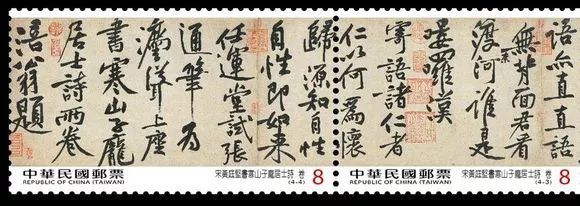 語亦直直語
無背面君看
奈
渡河誰是
嘍羅漢
寄語諸仁者
仁以何為懷
歸源知自性
自性即如來
任運堂試張
通筆為
灋聳上座
書寒山子龐
居士詩兩卷
涪翁題
中華民國郵票
REPUBLIC OF CHINA (TAIWAN)
宋黃庭堅書寒山子龐居士詩 卷
(4-4)
8
中華民國郵票
REPUBLIC OF CHINA (TAIWAN)
宋黃庭堅書寒山子龐居士詩 卷
(4-3)
8